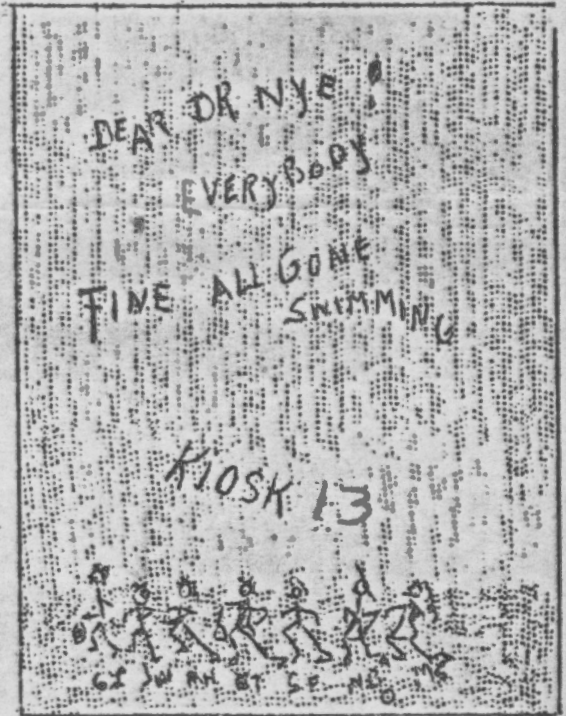 DEAR DR NYE
EVERYBODY
FINE ALL GONE
SWIMMING
KIOSK 13
GI JW AH BT SF